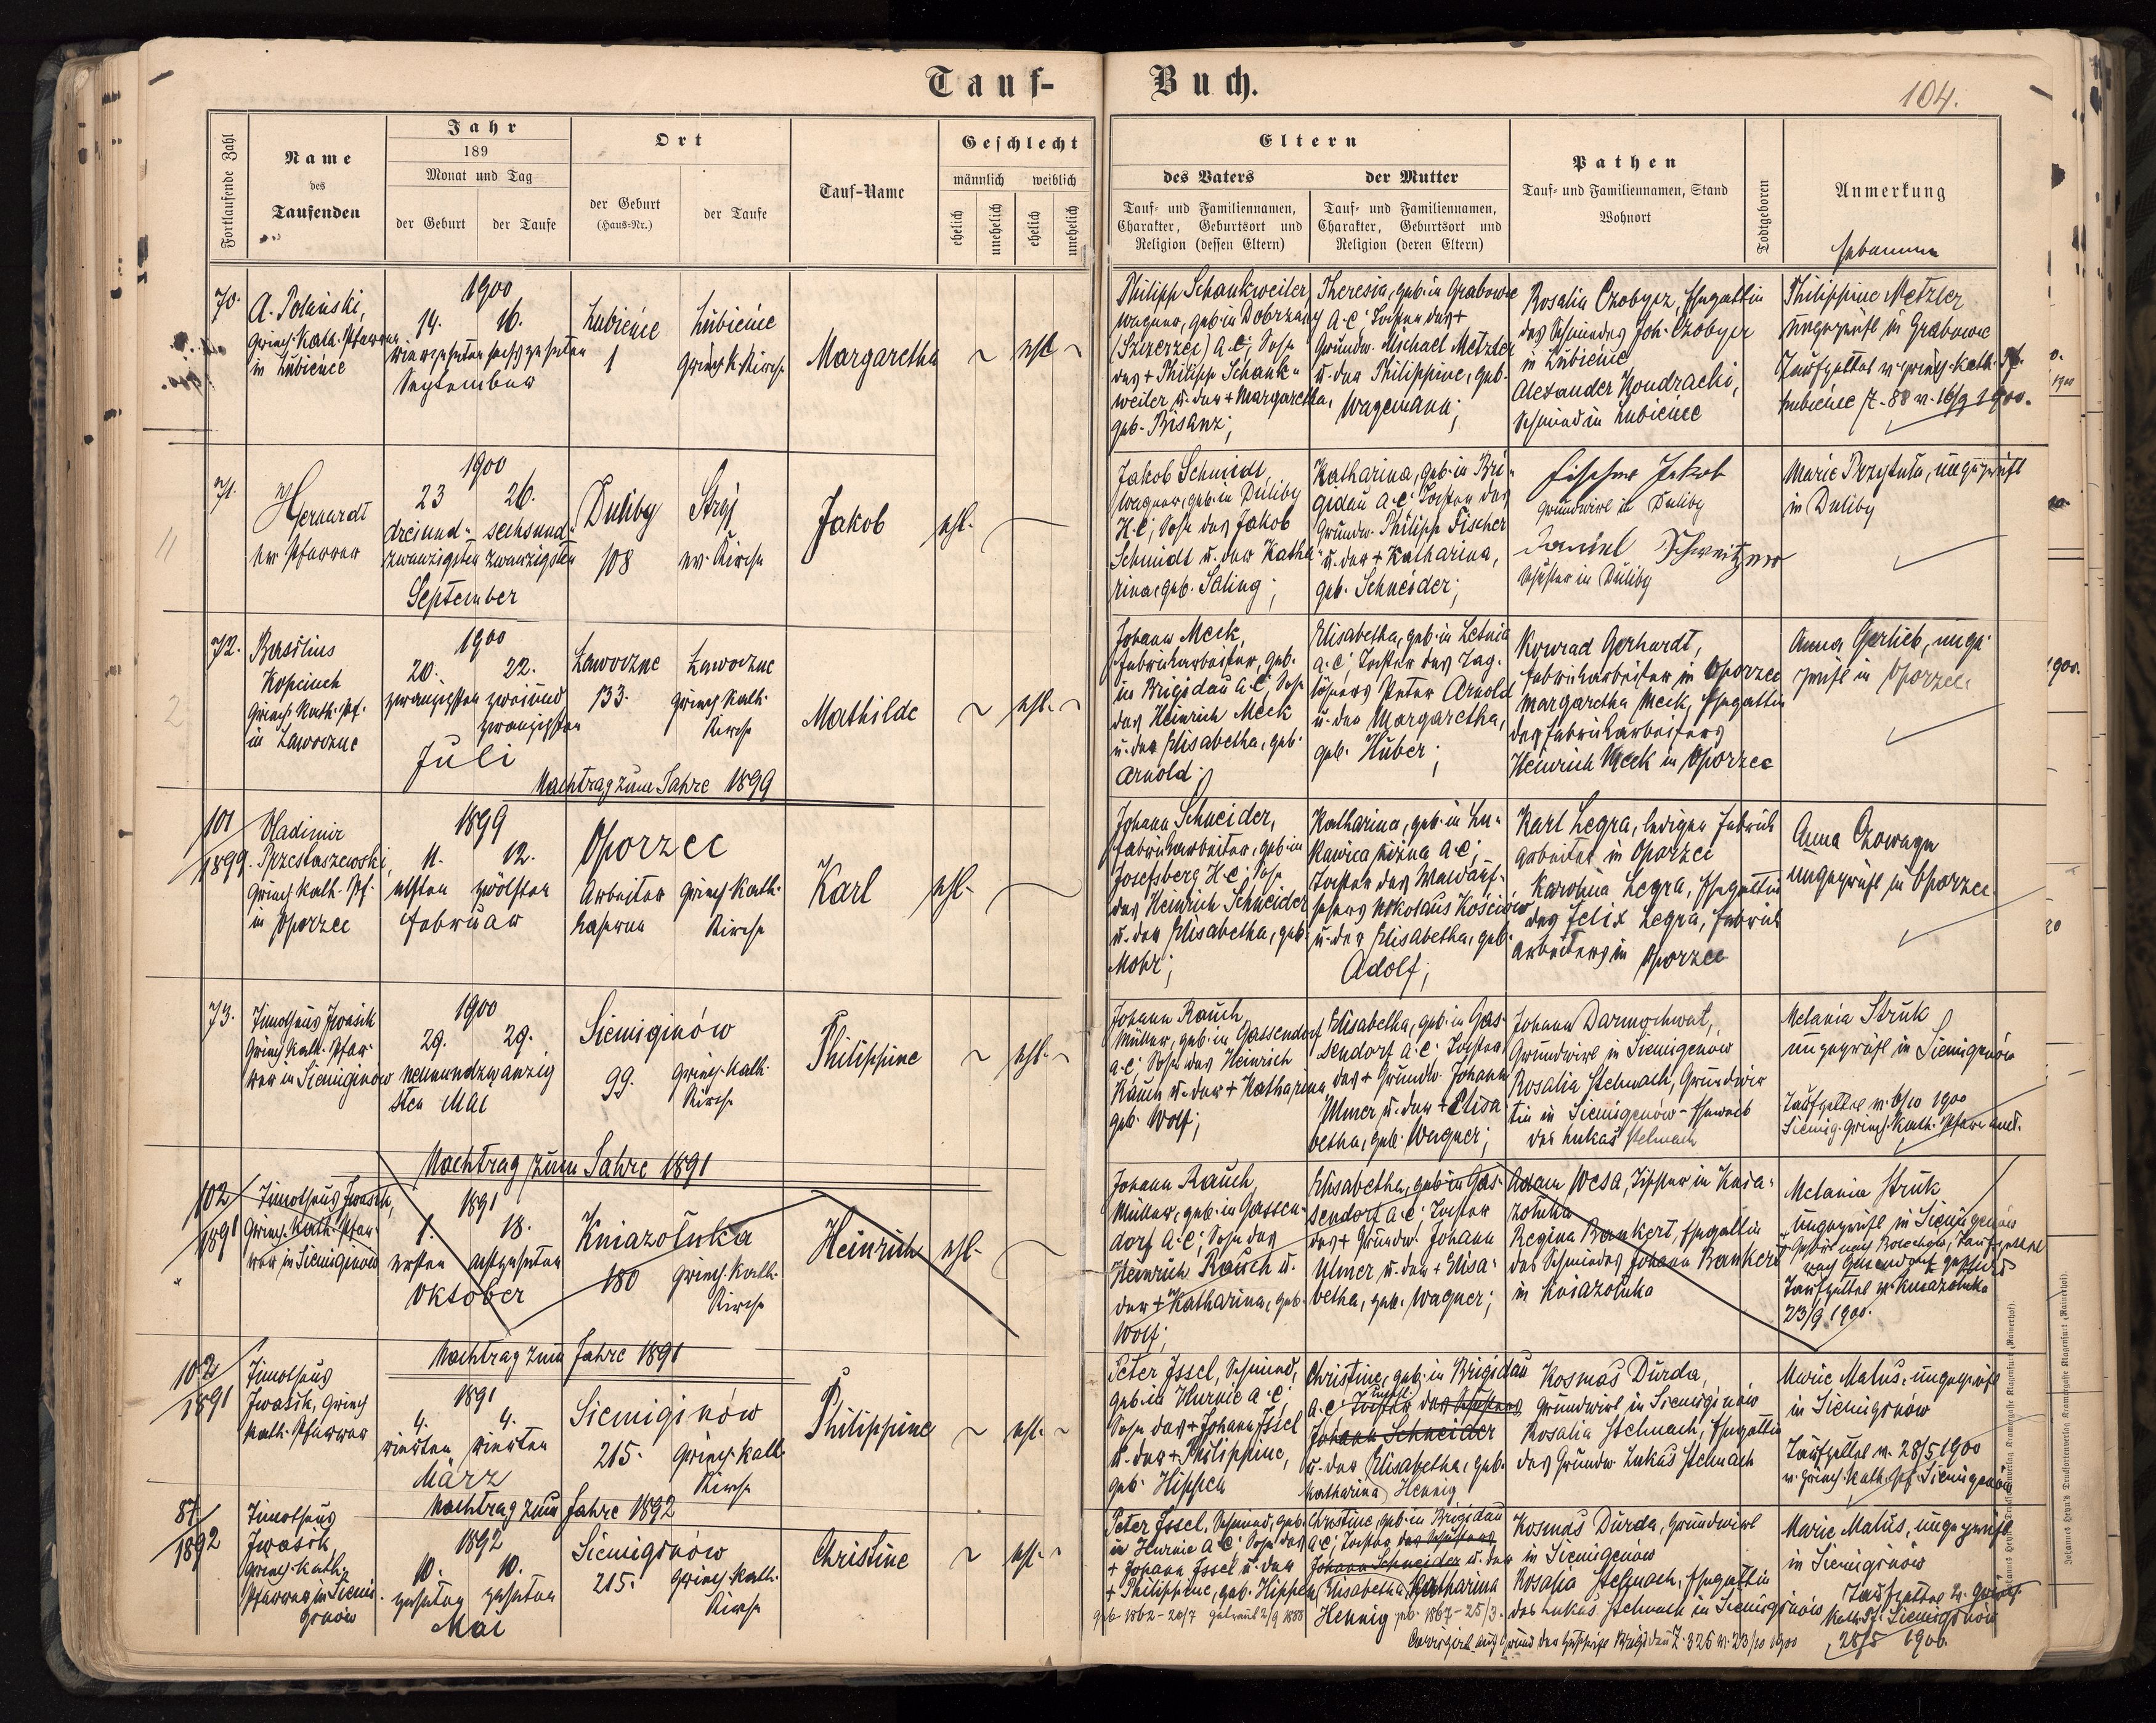 Tauf-Buch.
104.
Fortlaufende Zahl
Name
des
Taufenden
Jahr
189
Monat und Tag
der Geburt
der Taufe
Ort
der Geburt
(Haus-Nr.)
der Taufe
Tauf-Name
Geschlecht
männlich
weiblich
ehelich
unehelich
ehelich
unehelich
Eltern
des Vaters
Tauf- und Familiennamen,
Charakter, Geburtsort und
Religion (dessen Eltern)
der Mutter
Tauf- und Familiennamen,
Charakter, Geburtsort und
Religion (deren Eltern)
Pathen
Tauf- und Familiennamen, Stand
Wohnort
Todtgeboren
Anmerkung
Hebamme
70.
A. Polański,
griech. kath. Pfarrer
in Lubieńce
1900
14. 16.
vierzehnten sechszehnten
September
Lubieńce
1
Lubieńce
griech. k. Kirche
Margaretha
ehl.
Philipp Schankweiler,
Wagner, geb. in Dobrzany
(Szczerzec) A.C; Sohn
des + Philipp Schank-
weiler u. der + Margaretha,
geb. Bisanz;
Theresia, geb. in Grabowce
A.C; Tochter des +
Grundw. Michael Metzler
u. der Philippine, geb.
Wagemann;
Rosalia Czobycz, Ehegattin
des Schmiedes Joh. Czobycz
in Lubieńce
Alexander Kondracki,
Schmied in Lubieńce
Philippine Metzler
ungeprüft in Grabowce
Taufzettel v. griech. kath. Pf.
Lubieńce Z. 88 v. 16/9 1900.
71.
Gerhardt
ev. Pfarrer
1900
23 26.
dreiund- sechsund-
zwanzigsten zwanzigsten
September
Duliby
108
Stryj
ev. Kirche
Jakob
ehl.
Jakob Schmidt,
Wagner, geb. in Duliby
H.C; Sohn des Jakob
Schmidt u. der Katha-
rina geb. Saling;
Katharina, geb. in Bri-
gidau A.C; Tochter des
Grundw. Philipp Fischer
u. der + Katharina,
geb. Schneider;
Fischer Jakob
Grundwirt in Duliby
Daniel Schweitzer
Schuster in Duliby
Marie Przytuła, ungeprüft
in Duliby
72.
Basilius
Kopciuch
griech. kath. Pf.
in Ławoczne
1900
20. 22.
zwanzigsten zweiund
zwanzigsten
Juli
Ławoczne
133.
Ławoczne
griech. kath.
Kirche
Mathilde
ehl.
Johann Meck,
Fabriksarbeiter, geb.
in Brigidau A.C; Sohn
des Heinrich Meck
u. der Elisabetha, geb.
Arnold;
Elisabetha, geb. in Letnia
A.C; Tochter des Tag-
löhners Peter Arnold
u. der Margaretha,
geb. Huber;
Konrad Gerhardt,
Fabriksarbeiter in Oporzec
Margaretha Meck, Ehegattin
des Fabriksarbeiters
Heinrich Meck in Oporzec
Anna Gerlieb, unge-
prüft in Oporzec.
Nachtrag zum Jahre 1899
101/1899.
Vladimir
Przestaszewski,
griech. kath. Pf.
in Oporzec
1899
11. 12.
elften zwölften
Februar
Oporzec
Arbeiter
kaserne
griech. kath.
Kirche
Karl
ehl.
Johann Schneider,
Fabriksarbeiter, geb. in
Josefsberg H.C; Sohn
des Heinrich Schneider
u. der Elisabetha, geb.
Mohr;
Katharina, geb. in Lu-
kawica niżna A.C;
Tochter des Waldauf-
sehers Nikolaus Kościow
u. der Elisabetha, geb.
Adolf;
Karl Legra, lediger Fabriks
arbeiter in Oporzec
Karolina Legra, Ehegattin
des Felix Legra, Fabriks
arbeiters in Oporzec
Anna
ungeprüft in Oporzec
73.
Timotheus Iwasik
griech. kath. Pfar-
rer in Siemiginów
1900
29. 29.
neunundzwanzig
sten Mai
Siemiginów
99.
griech. kath.
Kirche
Philippine
ehl.
Johann Rauch,
Müller, geb. in Gassendorf
A.C; Sohn des Heinrich
Rauch u. der + Katharina
geb. Wolf;
Elisabetha, geb. in Gas-
sendorf A.C; Tochter
des + Grundw. Johann
Ulmer u. der + Elisa-
betha, geb. Wagner;
Johann Darmochwał,
Grundwirt in Siemiginów
Rosalia Stelmach, Grundwir
tin in Siemiginów - Eheweib
des Lukas Stelmach
Melania Struk
ungeprüft in Siemiginów
Taufzettel v. 6/10 1900
Siemig. griech. kath. Pfarramt.
Nachtrag zum Jahre 1891
102/1891
Timotheus Iwasik,
griech. kath. Pfar-
rer in Siemiginów
1891
1. 18.
ersten achtzehnten
Oktober
Kniazołuka
180
griech. kath.
Kirche
Heinrich
ehl.
Johann Rauch,
Müller, geb. in Gassen-
dorf A.C; Sohn des
Heinrich Rauch u.
der + Katharina, geb.
Wolf;
Elisabetha, geb. in Gas-
sendorf A.C; Tochter
des + Grundw. Johann
Ulmer u. der + Elisa-
betha, geb. Wagner;
Adam Wesa, Tischler in Knia-
zołuka
Regina Bankert, Ehegattin
des Schmiedes Johann Bankert
in Kniazołuka
Melania Struk
ungeprüft in Siemiginów
Gehört nach Bolechów, Taufzettel
nach Gassendorf geschickt
Taufzettel v. Kniazołuka
23/9 1900.
Nachtrag zum Jahre 1891
102/1891
Timotheus
Iwasik, griech
kath. Pfarrer
1891
4. 4.
vierten vierten
März
Siemiginów
215.
griech. kath.
Kirche
Philippine
ehl.
Peter Issel, Schmied,
geb. in Hurnie A.C;
Sohn des + Johann Issel
u. der + Philippine,
geb. Hippen
Christine, geb. in Brigidau
A.C; Tochter des Schusters
Johann Schneider
u. der Elisabetha, geb.
Katharina Hennig
Kosmas Durda,
Grundwirt in Siemiginów
Rosalia Stelmach, Ehegattin
des Grundw. Lukas Stelmach
Marie Matus, ungeprüft
in Siemiginów
Taufzettel v. 28/5 1900
v. griech. kath. Pf. Siemiginów
Nachtrag zum Jahre 1892
87/1892
Timotheus
Iwasik,
griech. kath.
Pfarrer in Siemi-
ginów
1892
10. 10.
zehnten zehnten
Mai
Siemiginów
215.
griech. kath.
Kirche
Christine
ehl.
Peter Issel, Schmied, geb.
in Hurnie A.C; Sohn des
+ Johann Issel u. der
+ Philippine, geb. Hippen
geb. 1862-20/7 getraut 2/9 1888
Christine, geb. in Brigidau
A.C; Tochter des Schusters
Johann Schneider u. der
Elisabetha, Katharina
Hennig geb. 1867-25/3.
Kosmas Durda, Grundwirt
in Siemiginów
Rosalia Stelmach, Ehegattin
des Lukas Stelmach in Siemiginów
Marie Matus, ungeprüft
in Siemiginów
Taufzettel v. griech.
kath. Pf. Siemiginów
28/5 1900.
Corrigirt auf Grund der Zuschrift Brigidau Z. 326 v. 23/10 1900